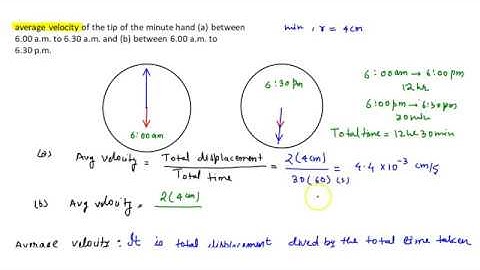 average velocity of the tip of the minute hand (a) between
6.00 a.m. to 6.30 a.m. and (b) between 6.00 a.m. to
6.30 p.m.
min , r = 4cm
6:00am
6:30pm
6:00am → 6:00pm
12hr
6:00pm → 6:30pm
30min
Total time = 12hr 30min
(a) Avg velocity = Total displacement / Total time = 2(4cm) / 30(60)(s) = 4.4 × 10⁻³ cm/s
(b) Avg velocity = 2(4cm)
Average velocity : It is total displacement dived by the total time taken